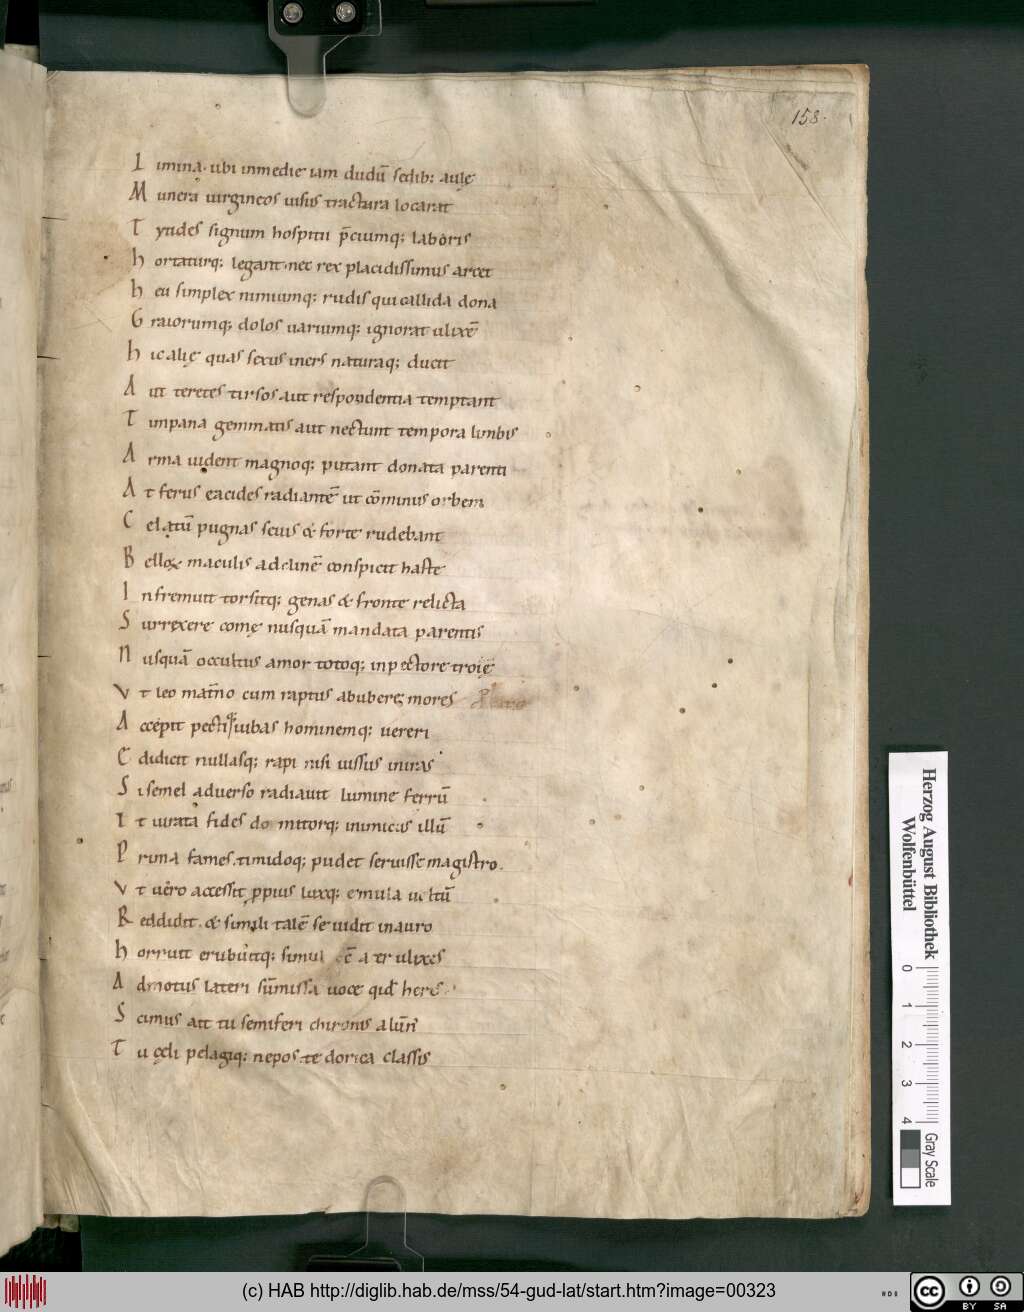 158.
L imina. ubi inmedie iam dudū sedib; aulę
M unera uirgineos uisus tractura locarat
T ytides signum hospitii p̄ciumq; laboris
h ortaturq; legant. nec rex placidissimus arcet
h eu simplex nimiumq; rudis qui callida dona
G raiorumq; dolos uariumq; ignorat ulixē
h ic alię quas sexus iners naturaq; ducit
A ut teretes tirsos aut respondentia temptant
T impana gemmatis aut nectunt tempora limbis
A rma uident magnoq; putant donata parenti
A t ferus eacides radiantē ut cōminus orbem
C elatū pugnas seuis & forte rudebant
B ellox maculis adclinē conspicit haste
I nfremuit torsitq; genas & fronte relicta
S urrexere comę nusquā mandata parentis
N usquā occultus amor totoq; inpectore troię
V t leo mat̄no cum raptus abubere; mores
A ccepit pectiuibas hominemq; uereri
E didicit nullasq; rapi nisi iussus iniras
S i semel aduerso radiauit lumine ferrū
I t iurata fides domitorq; inimicus illū
P rima fames. timidoq; pudet seruisse magistro.
V t uero accessit p̱pius luxq; emula uultū
R eddidit. & simili talē se uidit inauro
h orruit erubuitq; simul ater ulixes
A dmotus lateri sūmissa uoce qid heres
S cimus ait tu semiferi chironis alūn'
T u cęli pelagiq; nepos. te dorica classis
Herzog August Bibliothek
Wolfenbüttel
0 1 2 3 4
Gray Scale
(c) HAB http://diglib.hab.de/mss/54-gud-lat/start.htm?image=00323
cc BY SA